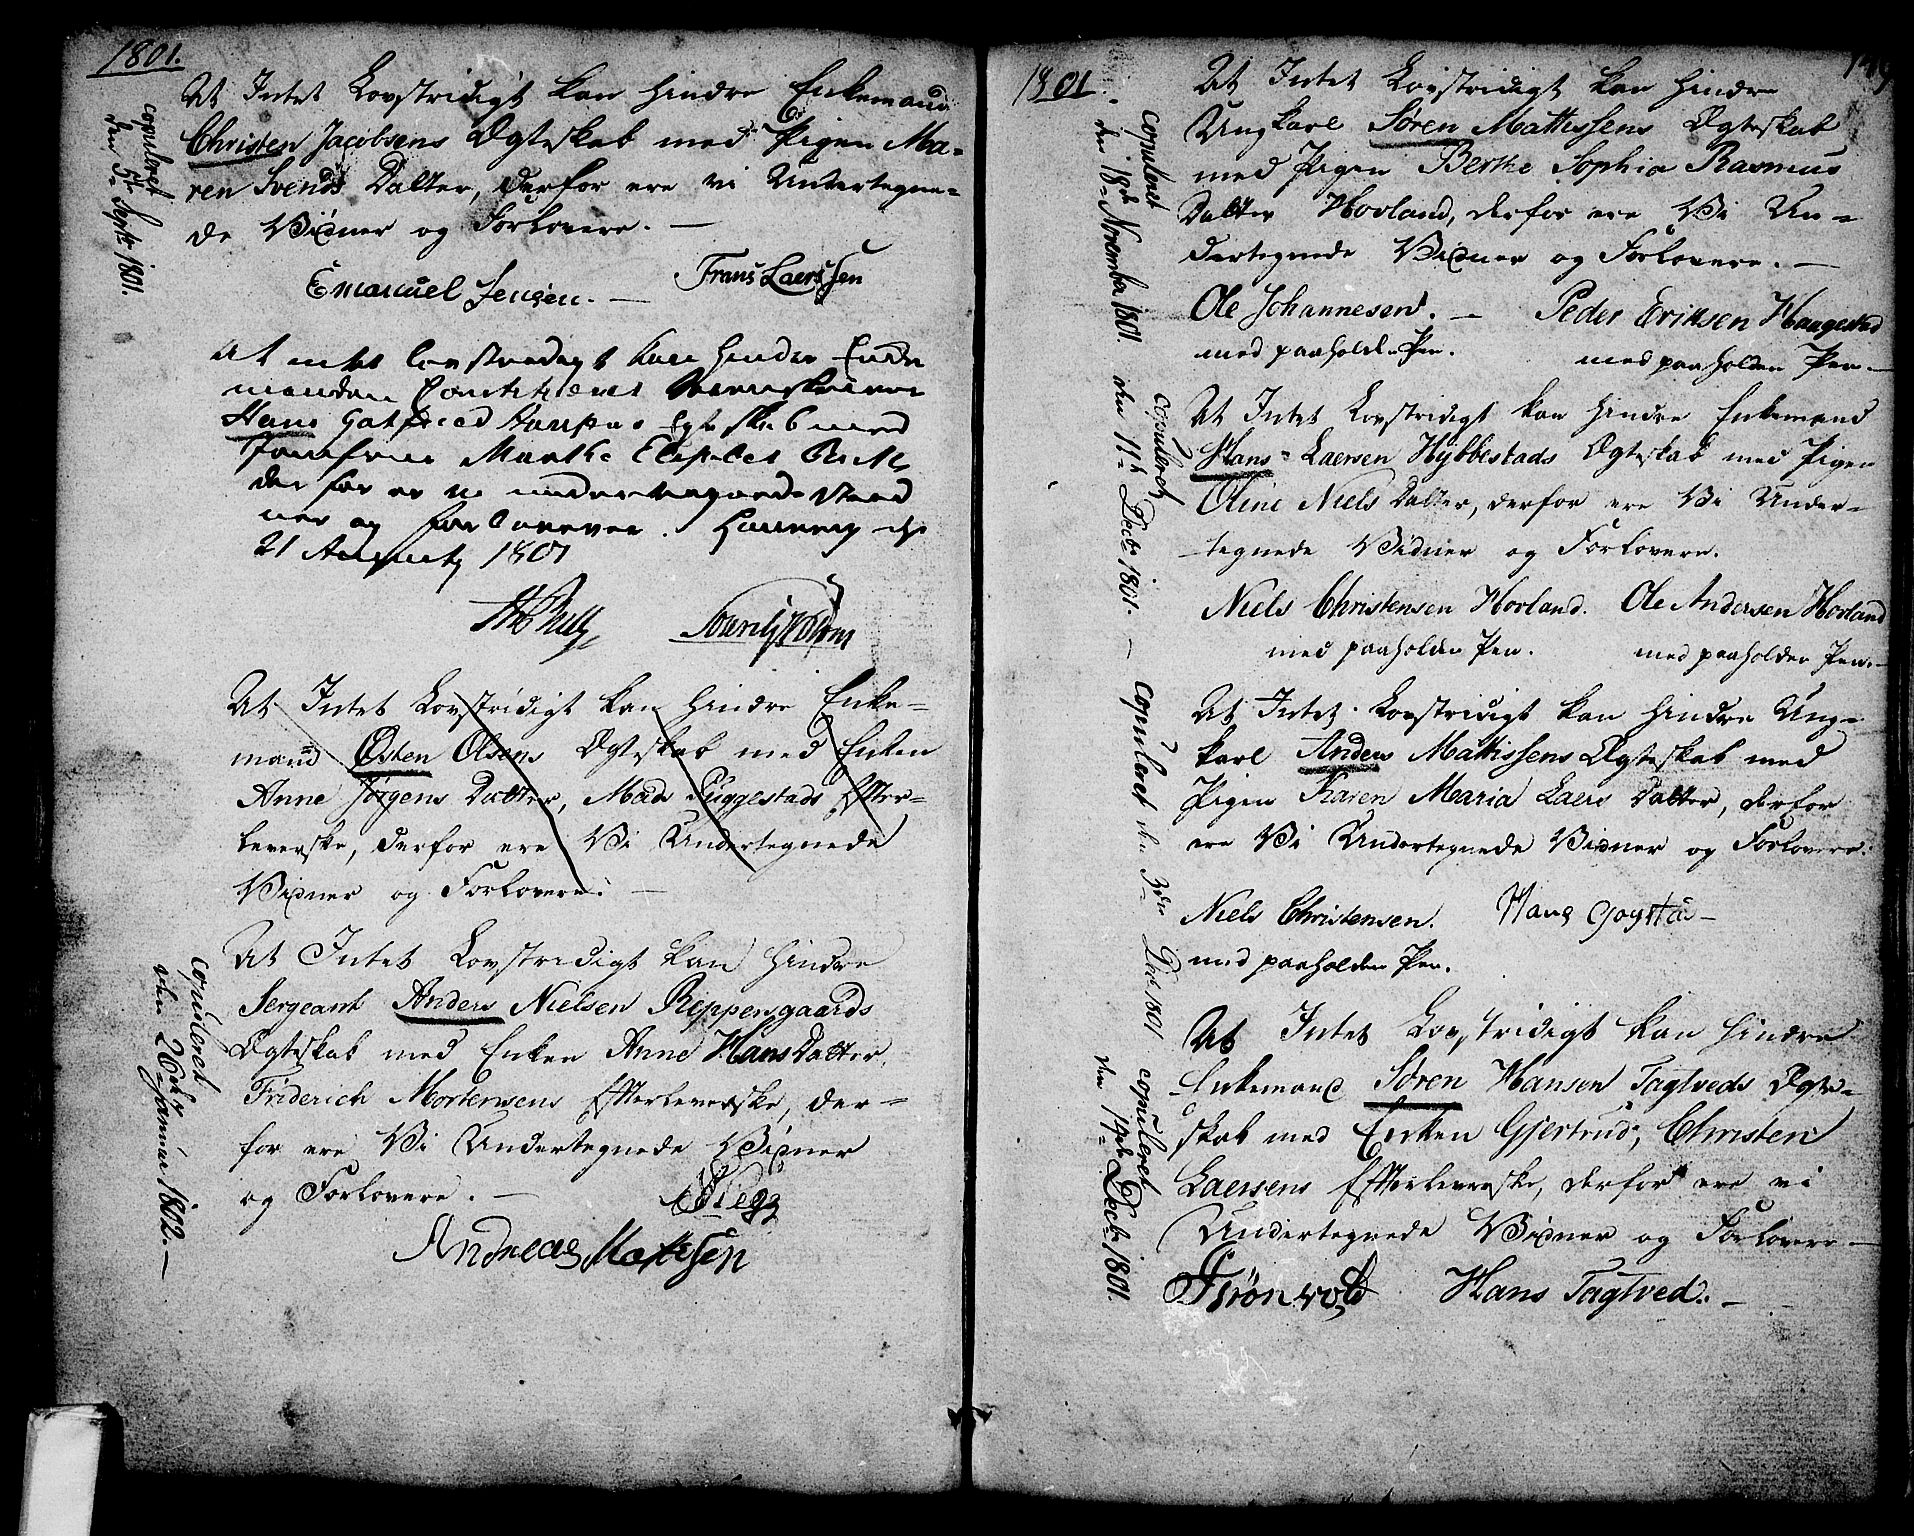 1801.
At Intet Lovstridigt kan hindre Enkemand
Christen Jacobsens Ægteskab med Pigen Ma-
ren Svends Datter, derfor ere vi Undertegne-
de Vidner og Forlovere. —
Emanuel Jensen. — Frans Laerssen
copuleret
den 5te Septr 1801.
At intet lovstredigt kan hindre Enke
manden
Hans Gotfried Egteskab med
Jomfrue Marthe Bull,
der for er vi undertegnede Vied
ner og forlovever. Lourvig d
21 Augusty 1801
Bull
At Intet Lovstridigt kan hindre Enke-
mand Østen Olsens Ægteskab med Enken
Anne Jørgens Datter, Mads Puggestads Efter-
leverske, derfor ere Vi Undertegnede
Vidner og Forlovere. —
At Intet Lovstridigt kan hindre
Sergeant Anders Nielsen Reppensgaards
Ægteskab med Enken Anne Hans Datter
Friderich Mortensens Efterleverske, der-
for ere Vi Undertegnede Vidner
og Forlovere. —
Andreas Matissen
copuleret
den 26de Januar 1802. —
1801.
At Intet Lovstridigt kan hindre
Ungkarl Søren Mattissens Ægteskab
med Pigen Berthe Sophia Rasmus
Datter Hovland, derfor ere Vi Un-
dertegnede Vidner og Forlovere. —
Ole Johannesen. — Peder Eriksen Haugestad
med paaholden Pen. med paaholden Pen. —
copuleret
den 18de November 1801.
At Intet Lovstridigt kan hindre Enkemand
Hans Laersen Hybbestads Ægteskab med Pigen
Oline Niels Datter, derfor ere Vi Under-
tegnede Vidner og Forlovere.
Niels Christensen Hovland. Ole Andersen Hovland
med paaholden Pen. med paaholden Pen. —
copuleret
den 11te Decbr 1801. —
At Intet Lovstridigt kan hindre Ung-
karl Anders Mattissens Ægteskab med
Pigen Karen Maria Laers Datter, derfor
ere Vi Undertegnede Vidner og Forlovere.
Niels Christensen. Hans
med paaholden Pen.
copuleret den Dec 1801
At Intet Lovstridigt kan hindre
Enkemand Søren Hansen Tagtveds Ægte-
skab med Enken Gjertrud, Christen
Laersens Efterleverske, derfor ere vi
Undertegnede Vidner og Forlovere —
Grønvold Hans Tagtved. —
copuleret
den 14de Decbr 1801.